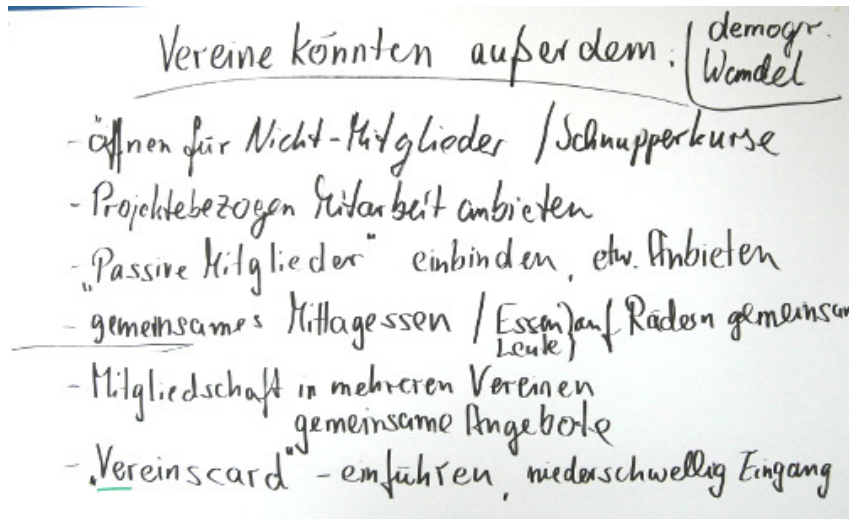 Vereine könnten außerdem: demogr.
Wandel
- öffnen für Nicht-Mitglieder / Schnupperkurse
- Projektebezogen Mitarbeit anbieten
- „Passive Mitglieder“ einbinden, etw. Anbieten
- gemeinsames Mittagessen / Essen auf Rädern gemeinsam
Leute
- Mitgliedschaft in mehreren Vereinen
gemeinsame Angebote
- „Vereinscard“ - einführen, niederschwellig Eingang